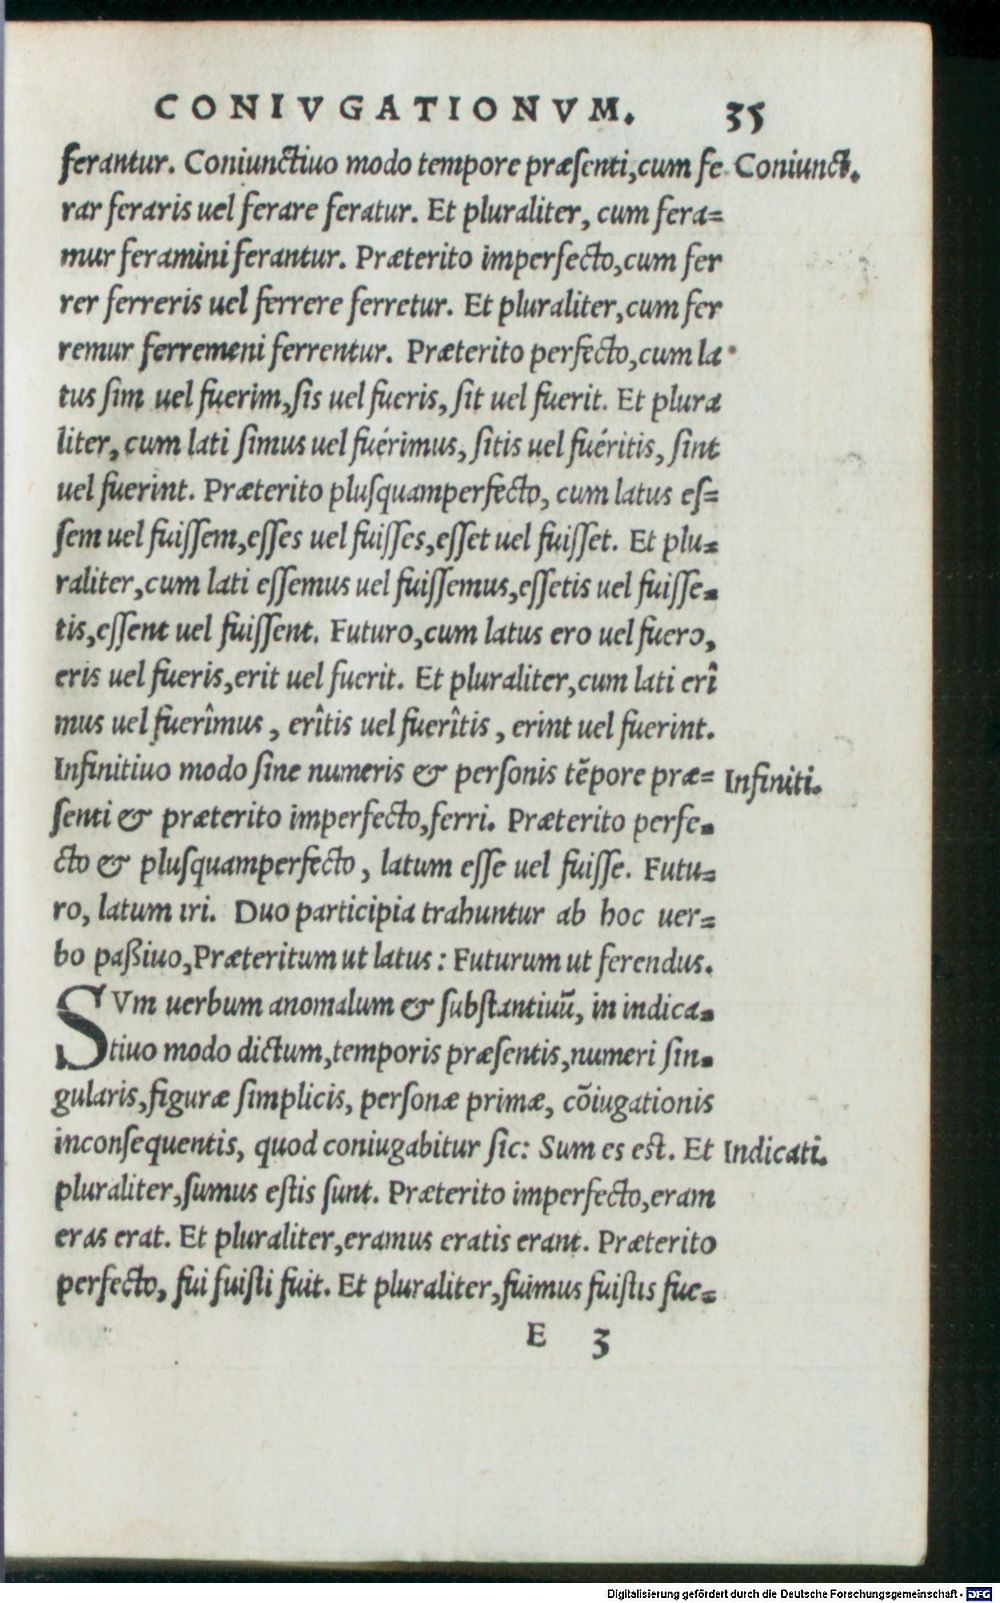 CONIVGATIONVM. 35
ferantur. Coniunctiuo modo tempore præſenti,cum fe Coniunct.
rar feraris uel ferare feratur. Et pluraliter, cum fera=
mur feramini ferantur. Præterito imperfecto,cum fer
rer ferreris uel ferrere ferretur. Et pluraliter,cum fer
remur ferremeni ferrentur. Præterito perfecto,cum la
tus ſim uel fuerim,ſis uel fueris, ſit uel fuerit. Et plura
liter, cum lati ſimus uel fuérimus, ſitis uel fuéritis, ſint
uel fuerint. Præterito pluſquamperfecto, cum latus eſ=
ſem uel fuiſſem,eſſes uel fuiſſes,eſſet uel fuiſſet. Et plu=
raliter,cum lati eſſemus uel fuiſſemus,eſſetis uel fuiſſe=
tis,eſſent uel fuiſſent. Futuro,cum latus ero uel fuero,
eris uel fueris,erit uel fuerit. Et pluraliter,cum lati erî
mus uel fuerîmus, erîtis uel fuerîtis, erint uel fuerint.
Infinitiuo modo ſine numeris & perſonis tẽpore præ= Infiniti.
ſenti & præterito imperfecto,ferri. Præterito perfe=
cto & pluſquamperfecto, latum eſſe uel fuiſſe. Futu=
ro, latum iri. Duo participia trahuntur ab hoc uer=
bo paßiuo,Præteritum ut latus: Futurum ut ferendus.
SVm uerbum anomalum & ſubſtantiuũ, in indica=
tiuo modo dictum,temporis præſentis,numeri ſin=
gularis,figuræ ſimplicis, perſonæ primæ, cõiugationis
inconſequentis, quod coniugabitur ſic: Sum es est. Et Indicati.
pluraliter,ſumus eſtis ſunt. Præterito imperfecto,eram
eras erat. Et pluraliter,eramus eratis erant. Præterito
perfecto, fui fuiſti fuit. Et pluraliter,fuimus fuiſtis fue=
E 3
Digitalisierung gefördert durch die Deutsche Forschungsgemeinschaft - DFG